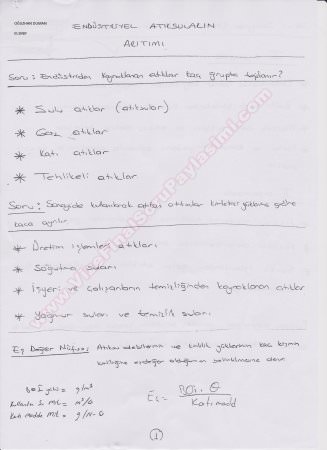 OĞUZHAN DUMAN
ENDÜSTRİYEL ATIKSULARIN
ARITIMI
Soru: Endüstriden kaynaklanan atıklar kaç grupta toplanır?
* Sulu atıklar (atıksular)
* Gaz atıklar
* Katı atıklar
* Tehlikeli atıklar
Soru: Sanayide kullanılarak atılan atıksular kirletici yüklerine göre
kaça ayrılır
* Üretim işlemleri atıkları
* Soğutma suları
* İşyeri ve çalışanların temizliğinden kaynaklanan atıklar
* Yağmur suları ve temizlik suları
Eş Değer Nüfus: Atıksu debilerinin ve kirlilik yüklerinin kaç kişinin
kirliliğine eşdeğer olduğunun
= g/m³
Kullanılan Su Mik = m³/G
Katı madde Mik = g/N-G
Eş = BOİ. Q
1
www.VizeFinalSoruPaylasimi.com